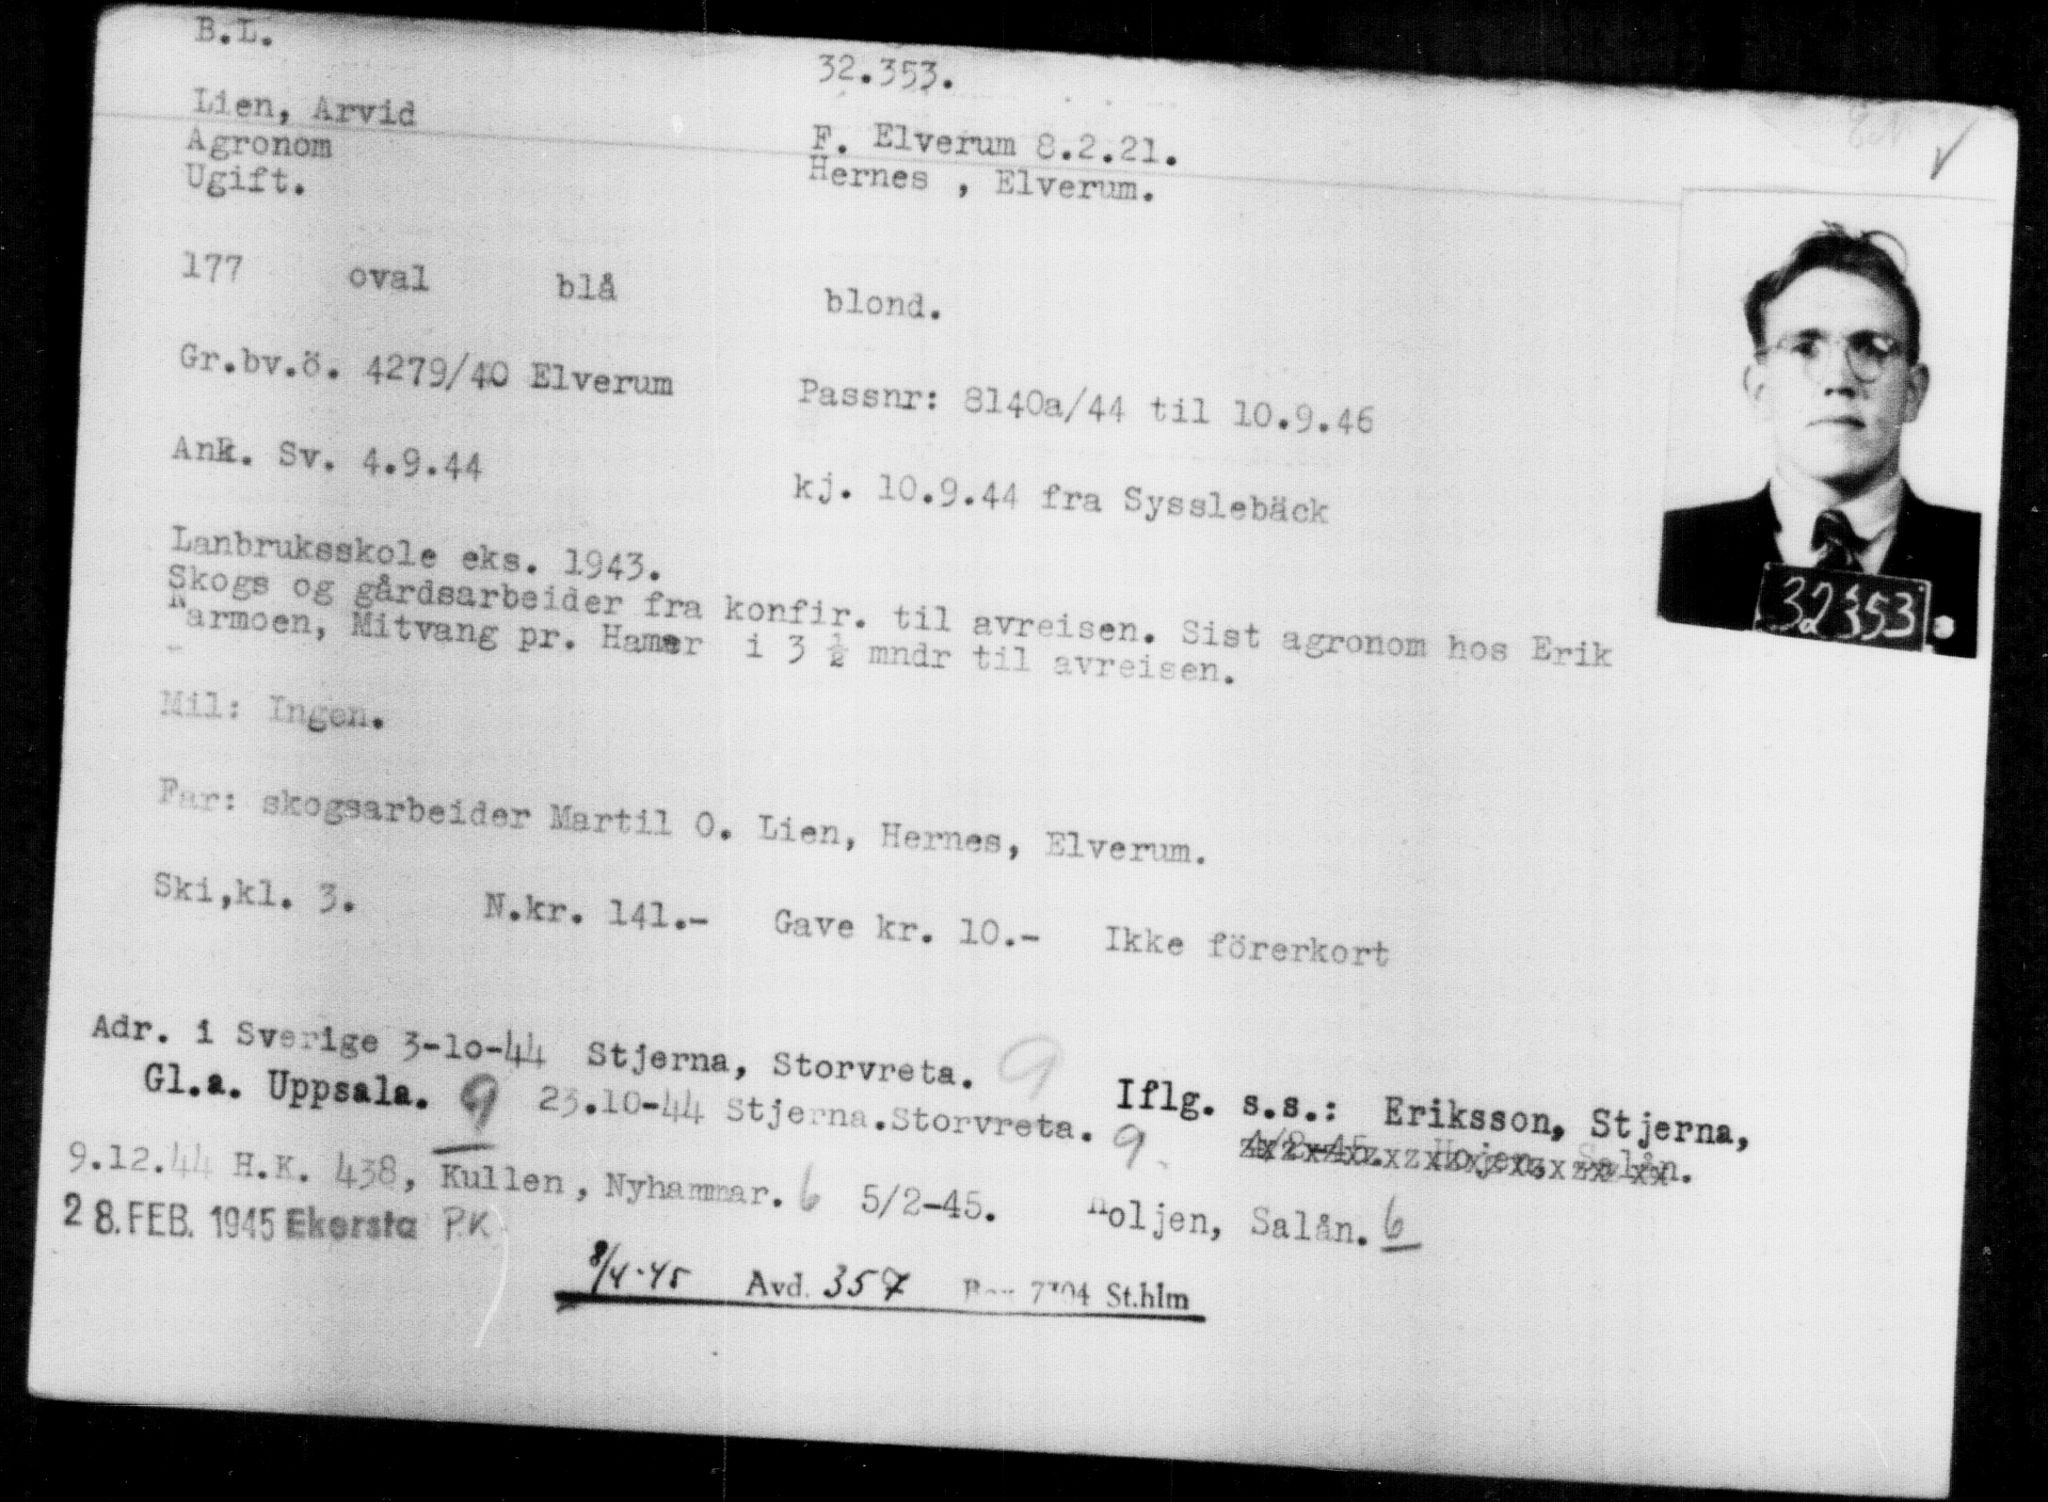 B.L.
32.353.
Lien, Arvid
F. Elverum 8.2.21.
Agronom
Hernes , Elverum.
Ugift.
177 oval blå blond.
Gr.bv.ö. 4279/40 Elverum
Passnr: 8140a/44 til 10.9.46
Ank. Sv. 4.9.44
kj. 10.9.44 fra Sysslebäck
Lanbruksskole eks. 1943.
Skogs og gårdsarbeider fra konfir. til avreisen. Sist agronom hos Erik
Narmoen, Mitvang pr. Hamar i 3 ½ mndr til avreisen.
Mil: Ingen.
Far: skogsarbeider Martil O. Lien, Hernes, Elverum.
Ski,kl. 3. N.kr. 141.- Gave kr. 10.- Ikke förerkort
Adr. i Sverige 3-10-44 Stjerna, Storvreta. 9
Iflg. s.s.: Eriksson, Stjerna,
Gl.a. Uppsala. 9 23.10-44 Stjerna.Storvreta. 9
9.12.44 H.K. 438, Kullen, Nyhammar. 6 5/2-45. Holjen, Salån. 6
28. FEB. 1945 Ekersta P.K
8/4-45 Avd. 357 St.hlm
32353